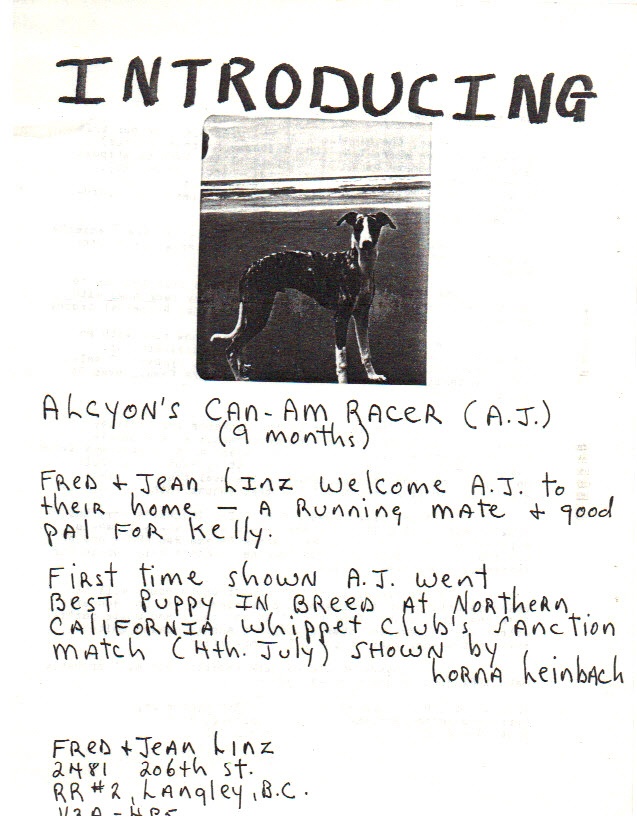 INTRODUCING
ALCYON'S CAN-AM RACER (A.J.)
(9 months)
FRED + JEAN LINZ welcome A.J. to
their home — A Running mate + good
pal FOR Kelly.
First time shown A.J. went
BEST PUPPY IN BREED At NORTHERN
CALIFORNIA Whippet Club's SANCTION
MATCH (4th. July) SHOWN by
LORNA Leinbach
FRED + JEAN LINZ
2481 206th st.
RR #2, LANgley, B.C.